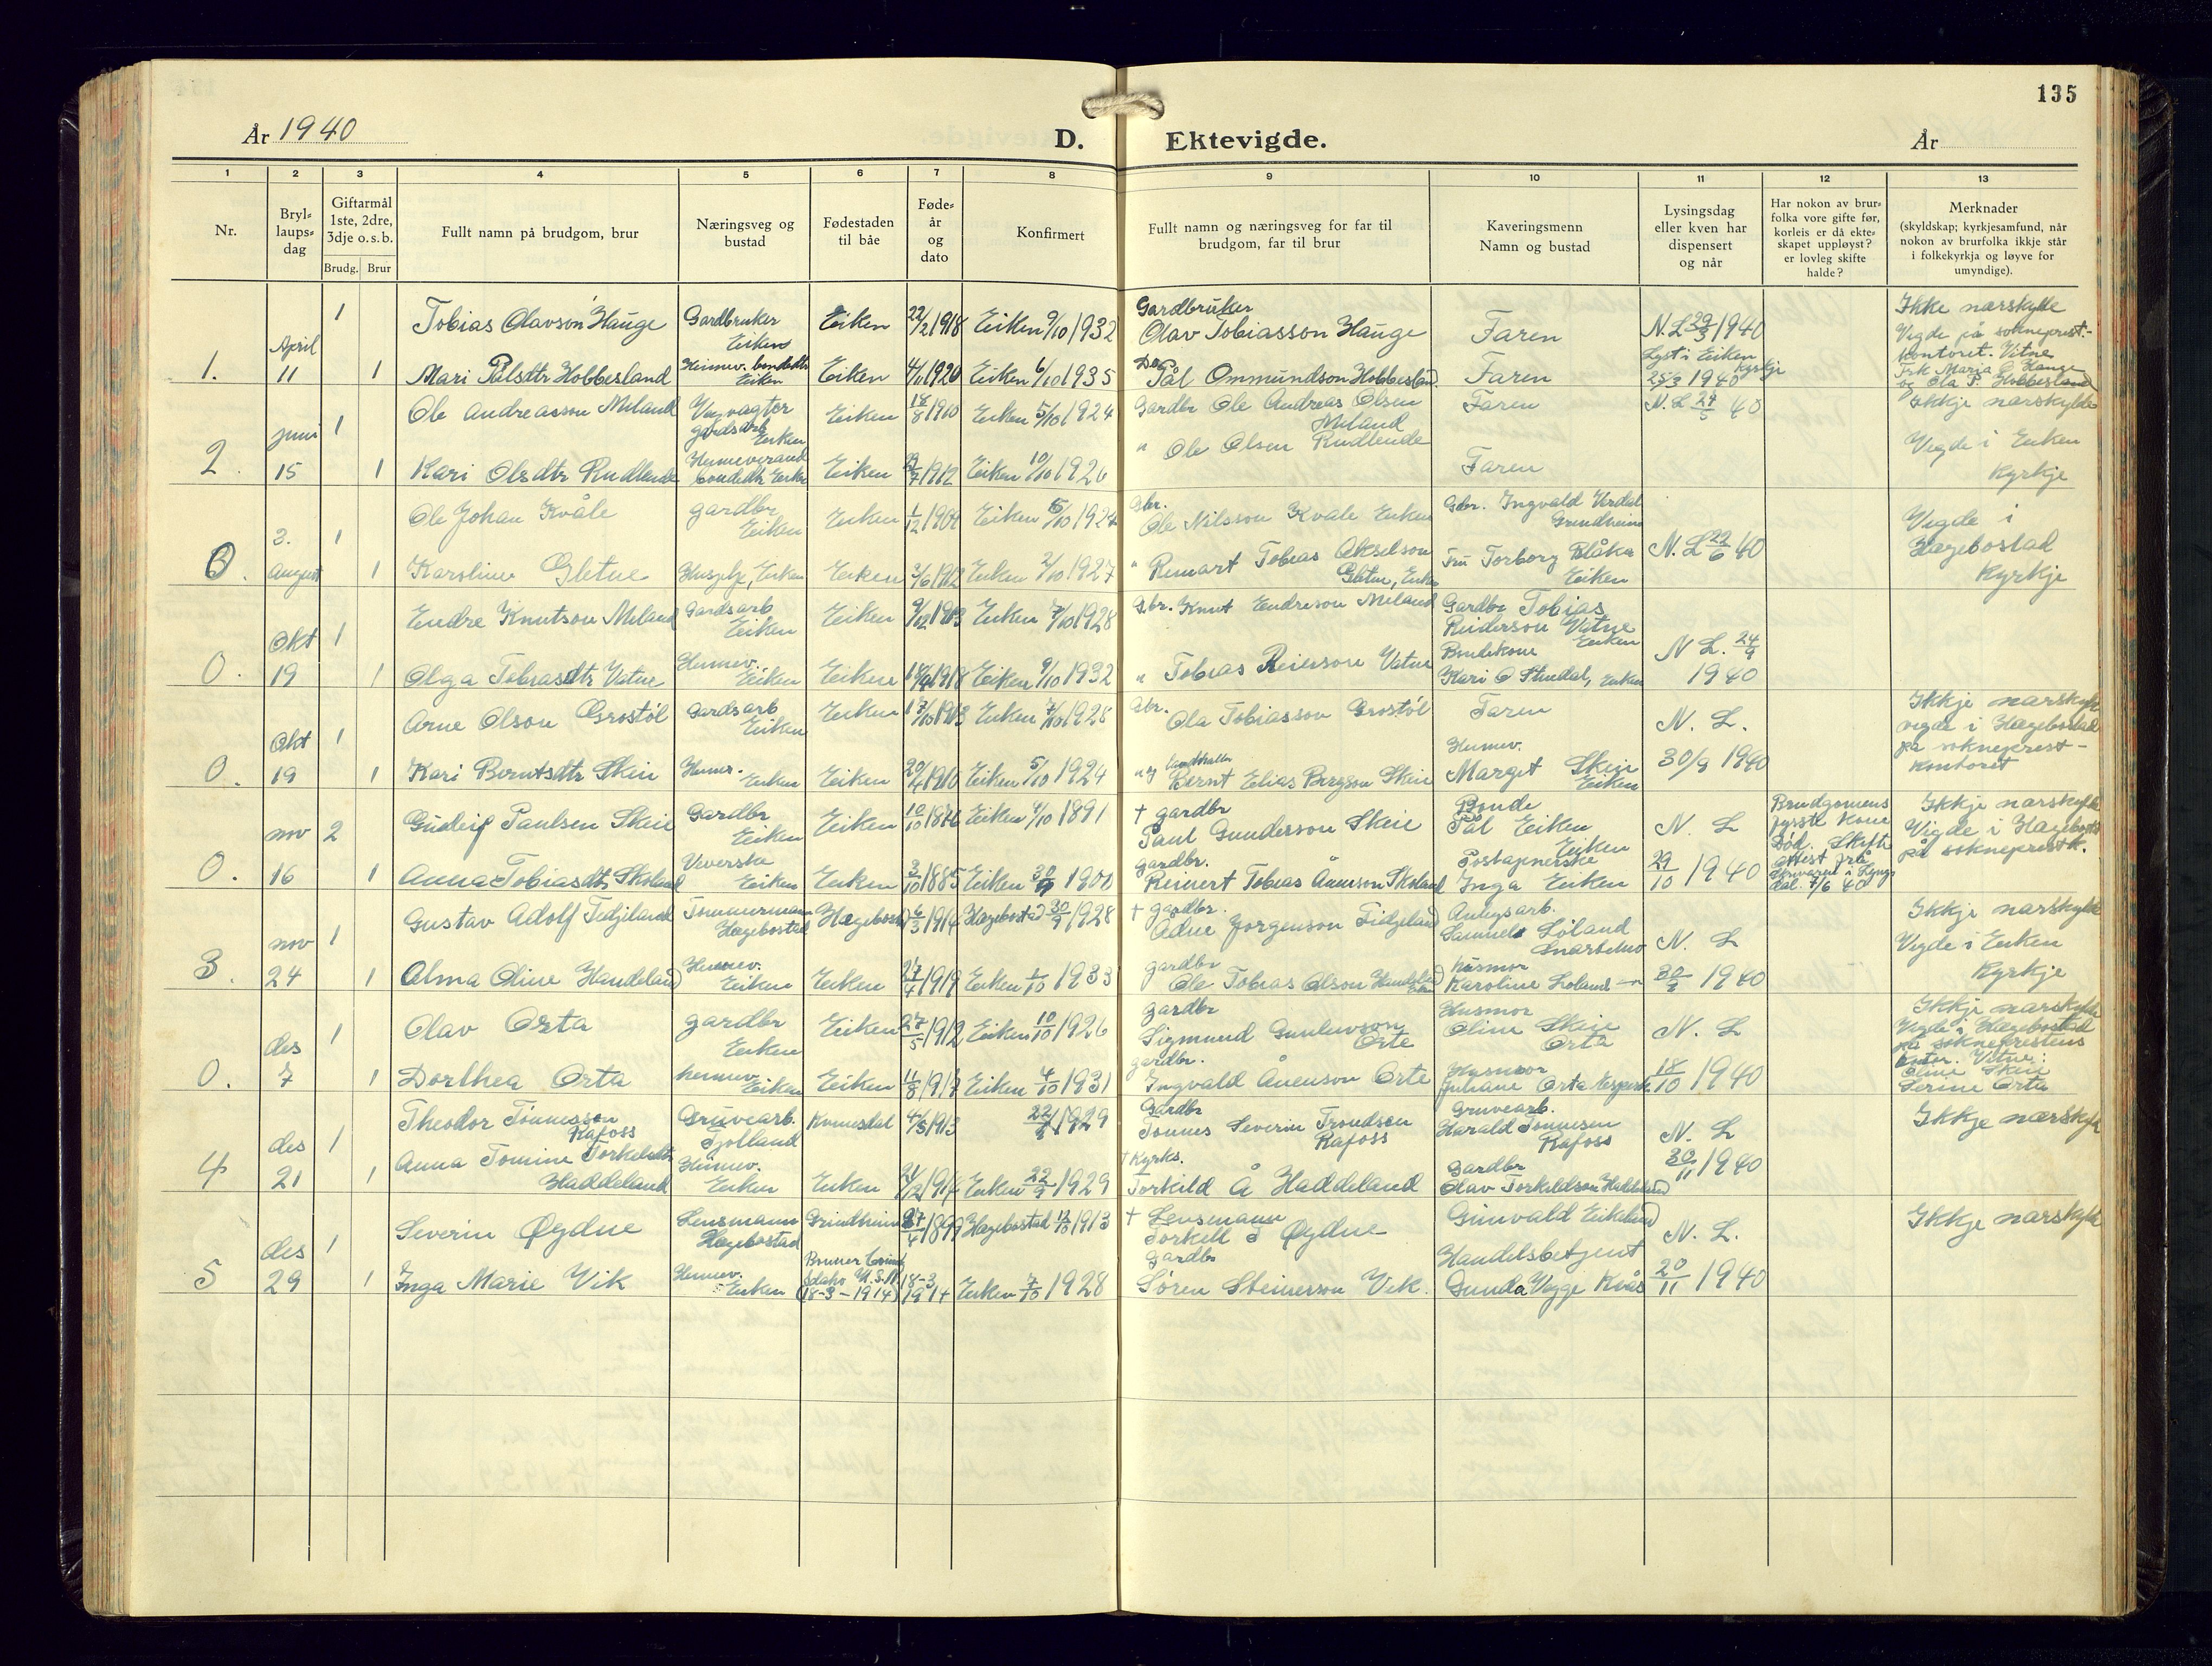 135
År 1940
D. Ektevigde.
År
1 2 3 4 5 6 7 8 9 10 11 12 13
Nr.
Bryl-
laups-
dag
Giftarmål
1ste, 2dre,
3dje o.s.b.
Brudg. Brur
Fullt namn på brudgom, brur
Næringsveg og
bustad
Fødestaden
til båe
Føde-
år
og
dato
Konfirmert
Fullt namn og næringsveg for far til
brudgom, far til brur
Kaveringsmenn
Namn og bustad
Lysingsdag
eller kven har
dispensert
og når
Har nokon av brur-
folka vore gifte før,
korleis er då ekte-
skapet uppløyst?
er lovleg skifte
halde?
Merknader
(skyldskap; kyrkjesamfund, når
nokon av brurfolka ikkje står
i folkekyrkja og løyve for
umyndige).
1. April 11
1 Tobias Olavson Hauge Gardbruker Eiken Eiken 22/2 1918 Eiken 9/10 1932 Gardbruker Olav Tobiasson Hauge Faren N.L 29/3 1940
1 Mari Pålsdtr Hobbesland Heimev. bondedtr Eiken Eiken 4/11 1920 Eiken 6/10 1935 Do Pål Ommundson Hobbesland Faren Lyst i Eiken Kyrkje 25/3 1940
Ikke nærskylde
Vegde på sokneprest-
kontoret. Vitne
Frk Maria O Hauge
og Ola P. Hobbesland
2. juni 15
1 Ole Andreasson Miland Vegvagter gardsarb Eiken Eiken 18/8 1910 Eiken 5/10 1924 Gardbr Ole Andreas Olsen Miland Faren N.L 24/5 40
1 Kari Olsdtr Rudlende Heimeverand bondedtr Eiken Eiken 1912 Eiken 10/10 1926 " Ole Olsen Rudlende Faren
Ikkje nærskylde
Vegde i Eiken
Kyrkje
0. 3. August
1 Ole Johan Kvåle gardbr Eiken Eiken 1/12 1909 Eiken 5/10 1924 Gbr. Ole Nilsson Kvåle Eiken Gbr. Ingvald Verdal Grindheim N.L 22/6 40
1 Karoline Gletne Eiken Eiken 3/6 1912 Eiken 2/10 1927 " Reinart Tobias Akselson Gletne, Eiken Fru Torborg Blåka Eiken
Vegde i
Hægebostad
Kyrkje
0. Okt 19
1 Endre Knutson Miland Gardsarb Eiken Eiken 9/12 1913 Eiken 7/10 1928 Gbr. Knut Endreson Miland Gardbr Tobias Reiderson Vatne Eiken N L. 24/9 1940
1 Olga Tobiasdtr Vatne Heimev. Eiken Eiken 1918 Eiken 9/10 1932 " Tobias Reierson Vatne Bondekone Kari O Stundal, Eiken
0. Okt 19
1 Arne Olson Grostøl Gardsarb Eiken Eiken 17/10 1913 Eiken 7/10 1928 Gbr. Ola Tobiasson Grostøl Faren N. L.
1 Kari Berntsdtr Skeie Heimev. Eiken Eiken 20/4 1910 Eiken 5/10 1924 " og landhandler Bernt Elias Bergson Skeie Heimev. Marget Skeie Eiken 30/9 1940
Ikkje nærskylde
vegde i Hægebostad
på sokneprest-
kontoret
0. nov 16
2 Gudleif Paulsen Skeie Gardbr Eiken Eiken 10/10 1876 Eiken 4/10 1891 † gardbr Paul Gunderson Skeie Bonde Pål Eiken Eiken N. L
1 Anna Tobiasdtr Skoland Veverske Eiken Eiken 3/10 1885 Eiken 30/9 1900 gardbr. Reinert Tobias Ånenson Skoland Postopnerske Inga Eiken 29/10 1940
Brudgomens
fyrste kone
Død. Skifte
attest frå
i Lyng-
dal. 7/6 40
Ikkje nærskylde
Vigde i Hægebostad
på sokneprestk.
3. nov 24
1 Gustav Adolf Fidjeland Tømmermann Hægebostad Hægebostad 6/3 1914 Hægebostad 30/9 1928 † gardbr. Adne Jørgenson Fidjeland Anlegsarb. Samuel Løland Snartemo N. L
1 Alma Oline Handeland Heimev. Eiken Eiken 27/4 1919 Eiken 1/10 1933 gardbr Ole Tobias Olson Handeland Eiken Husmor Karoline Løland –"– 1940
Ikkje nærskylde
Vegde i Eiken
Kyrkje
0. des 7
1 Olav Orta gardbr Eiken Eiken 27/5 1912 Eiken 10/10 1926 gardbr Sigmund Gunluvson Orte Husmor Oline Skeie Orta N. L
1 Dorthea Orta heimev. Eiken Eiken 11/8 1917 Eiken 4/10 1931 gardbr. Ingvald Ånenson Orte Husmor Juliane Orta 18/10 1940
Ikkje nærskylde
Vegde i Hægebostad
på sokneprestens
kntor. Vitne:
Oline Skeie
Serine Orta
4 des 21
1 Theodor Tønnesson Rafoss Gruvearb. Fjotland Kvinesdal 4/5 1913 22/9 1929 Gardbr Tønnes Severin Trondson Rafoss Gruvearb. Harald Tønnesen Rafoss N. L
1 Anna Tomine Torkelsdtr Haddeland Heimev. Eiken Eiken 21/2 1914 Eiken 22/9 1929 † Kyrks. Torkild Å Haddeland Gardbr Olav Torkildson Haddeland 30/11 1940
Ikkje nærskylde
5 des 29
1 Severin Øydne Lensmann Hægebostad Grindheim 27/4 1899 Hægebostad 12/10 1913 † Lensmann Torkell S Øydne Gunvald Eikeland N. L.
1 Inga Marie Vik Heimev. Eiken Idaho U.S.A. (18-3-1914) 18-3 1914 Eiken 7/10 1928 Gardbr Søren Steinerson Vik. Handelsbetjent Gunda Vegge Kvås 20/11 1940
Ikkje nærskylde